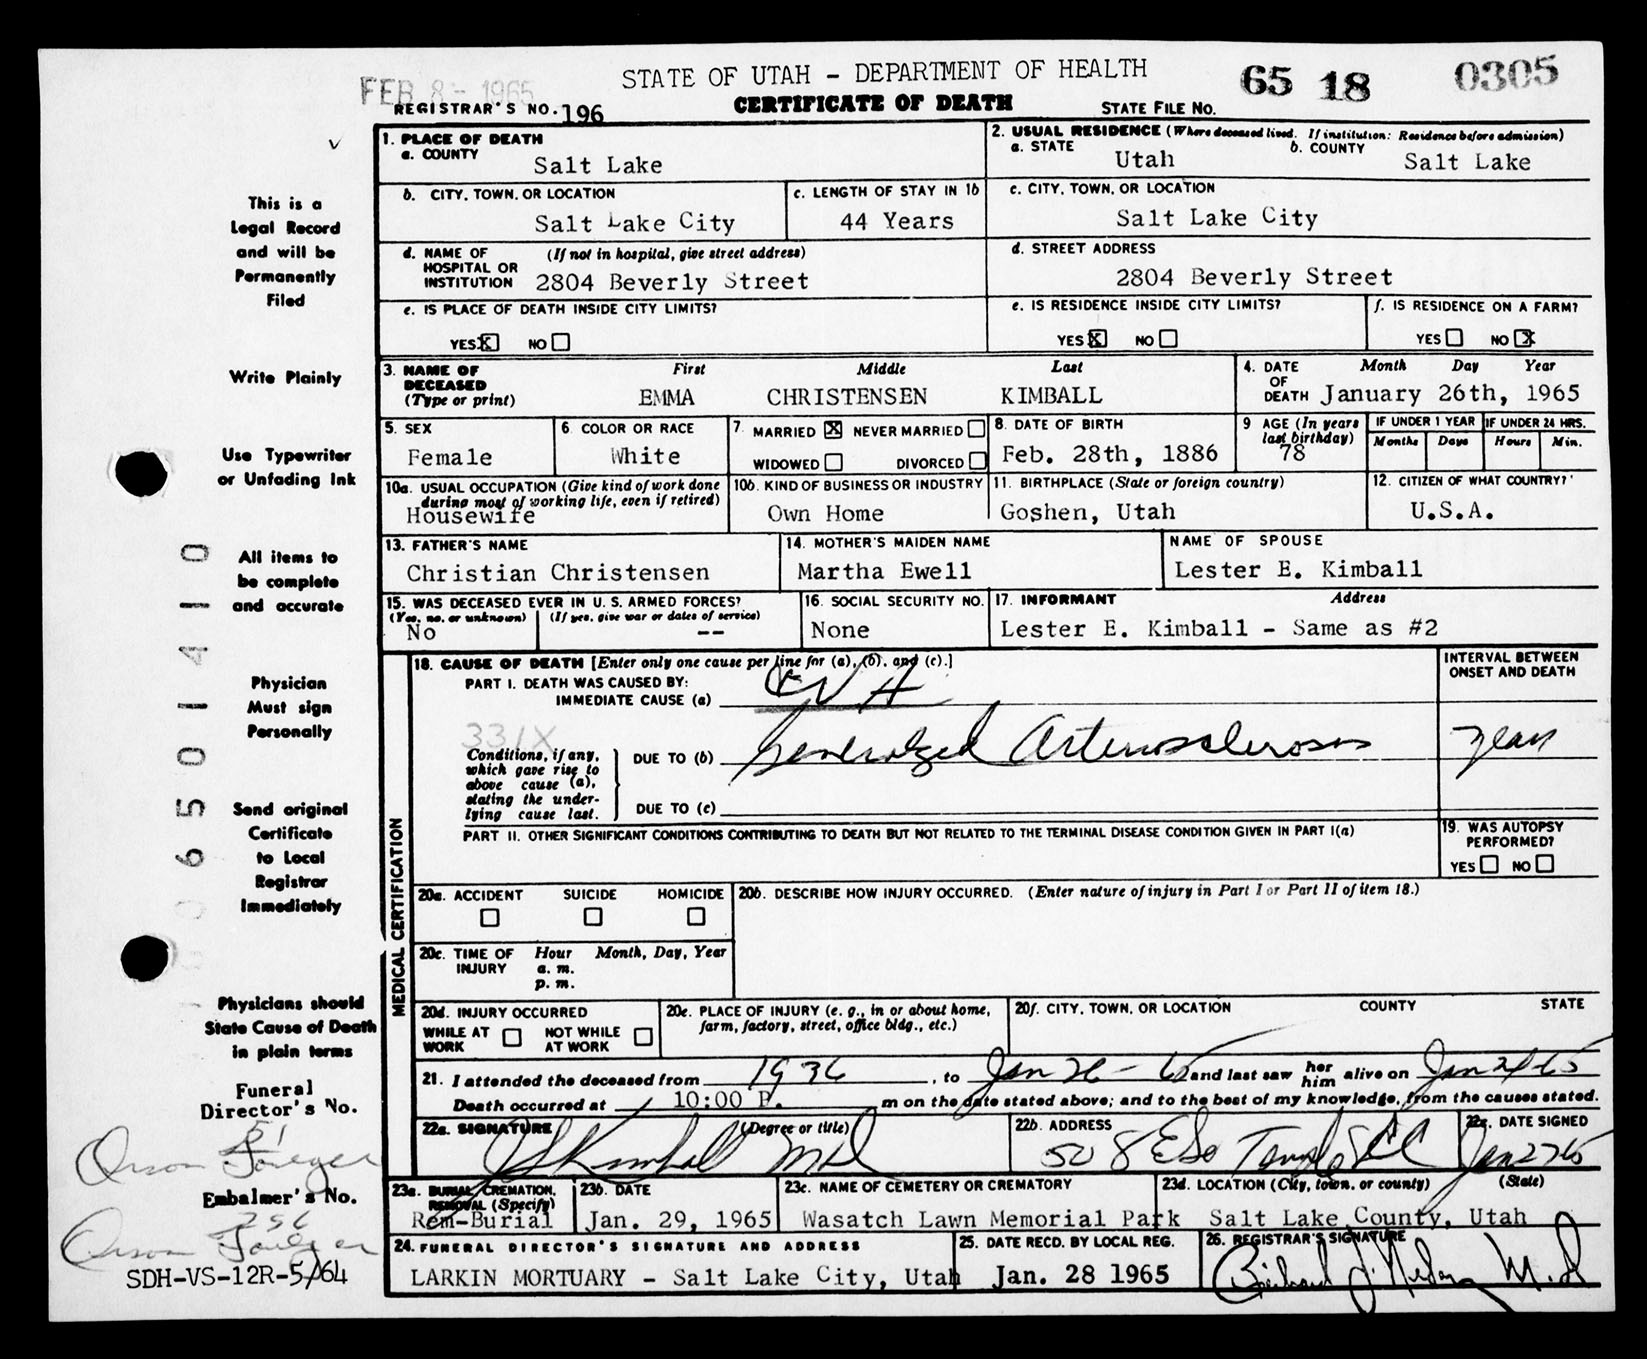 FEB 8 - 1965
STATE OF UTAH - DEPARTMENT OF HEALTH
65 18 0305
REGISTRAR'S NO. 196
CERTIFICATE OF DEATH
STATE FILE NO.
This is a
Legal Record
and will be
Permanently
Filed
Write Plainly
Use Typewriter
or Unfading Ink
All items to
be complete
and accurate
Physician
Must sign
Personally
Send original
Certificate
to Local
Registrar
Immediately
Physicians should
State Cause of Death
in plain terms
Funeral
Director's No.
51
Orson Foulger
Embalmer's No.
256
Orson Foulger
SDH-VS-12R-5/64
650141 0
1. PLACE OF DEATH
a. COUNTY
Salt Lake
2. USUAL RESIDENCE (Where deceased lived. If institution: Residence before admission)
a. STATE Utah b. COUNTY Salt Lake
b. CITY, TOWN, OR LOCATION
Salt Lake City
c. LENGTH OF STAY IN 1b
44 Years
c. CITY, TOWN, OR LOCATION
Salt Lake City
d. NAME OF HOSPITAL OR INSTITUTION (If not in hospital, give street address)
2804 Beverly Street
d. STREET ADDRESS
2804 Beverly Street
e. IS PLACE OF DEATH INSIDE CITY LIMITS?
YES X NO
e. IS RESIDENCE INSIDE CITY LIMITS?
YES X NO
f. IS RESIDENCE ON A FARM?
YES NO X
3. NAME OF DECEASED (Type or print) First Middle Last
EMMA CHRISTENSEN KIMBALL
4. DATE OF DEATH Month Day Year
January 26th, 1965
5. SEX
Female
6 COLOR OR RACE
White
7. MARRIED X NEVER MARRIED
WIDOWED DIVORCED
8. DATE OF BIRTH
Feb. 28th, 1886
9 AGE (In years last birthday)
78
IF UNDER 1 YEAR
Months Days
IF UNDER 24 HRS.
Hours Min.
10a. USUAL OCCUPATION (Give kind of work done during most of working life, even if retired)
Housewife
10b. KIND OF BUSINESS OR INDUSTRY
Own Home
11. BIRTHPLACE (State or foreign country)
Goshen, Utah
12. CITIZEN OF WHAT COUNTRY?
U.S.A.
13. FATHER'S NAME
Christian Christensen
14. MOTHER'S MAIDEN NAME
Martha Ewell
NAME OF SPOUSE
Lester E. Kimball
15. WAS DECEASED EVER IN U. S. ARMED FORCES?
(Yes, no, or unknown) (If yes, give war or dates of service)
No --
16. SOCIAL SECURITY NO.
None
17. INFORMANT Address
Lester E. Kimball - Same as #2
MEDICAL CERTIFICATION
18. CAUSE OF DEATH [Enter only one cause per line for (a), (b), and (c).]
PART I. DEATH WAS CAUSED BY:
IMMEDIATE CAUSE (a) CVA
INTERVAL BETWEEN ONSET AND DEATH
331X
Conditions, if any, which gave rise to above cause (a), stating the underlying cause last.
DUE TO (b) Generalized Arteriosclerosis years
DUE TO (c)
PART II. OTHER SIGNIFICANT CONDITIONS CONTRIBUTING TO DEATH BUT NOT RELATED TO THE TERMINAL DISEASE CONDITION GIVEN IN PART I(a)
19. WAS AUTOPSY PERFORMED?
YES NO
20a. ACCIDENT SUICIDE HOMICIDE
20b. DESCRIBE HOW INJURY OCCURRED. (Enter nature of injury in Part I or Part II of item 18.)
20c. TIME OF INJURY Hour Month, Day, Year
a. m.
p. m.
20d. INJURY OCCURRED
WHILE AT WORK NOT WHILE AT WORK
20e. PLACE OF INJURY (e. g., in or about home, farm, factory, street, office bldg., etc.)
20f. CITY, TOWN, OR LOCATION COUNTY STATE
21. I attended the deceased from 1936, to Jan 26-65 and last saw her him alive on Jan 24-65
Death occurred at 10:00 P. m on the date stated above; and to the best of my knowledge, from the causes stated.
22a. SIGNATURE (Degree or title)
Kimball MD
22b. ADDRESS
508 E So Temple SLC
22c. DATE SIGNED
Jan 27 65
23a. BURIAL, CREMATION, REMOVAL (Specify)
Rem-Burial
23b. DATE
Jan. 29, 1965
23c. NAME OF CEMETERY OR CREMATORY
Wasatch Lawn Memorial Park
23d. LOCATION (City, town, or county) (State)
Salt Lake County, Utah
24. FUNERAL DIRECTOR'S SIGNATURE AND ADDRESS
LARKIN MORTUARY - Salt Lake City, Utah
25. DATE RECD. BY LOCAL REG.
Jan. 28 1965
26. REGISTRAR'S SIGNATURE
M.D